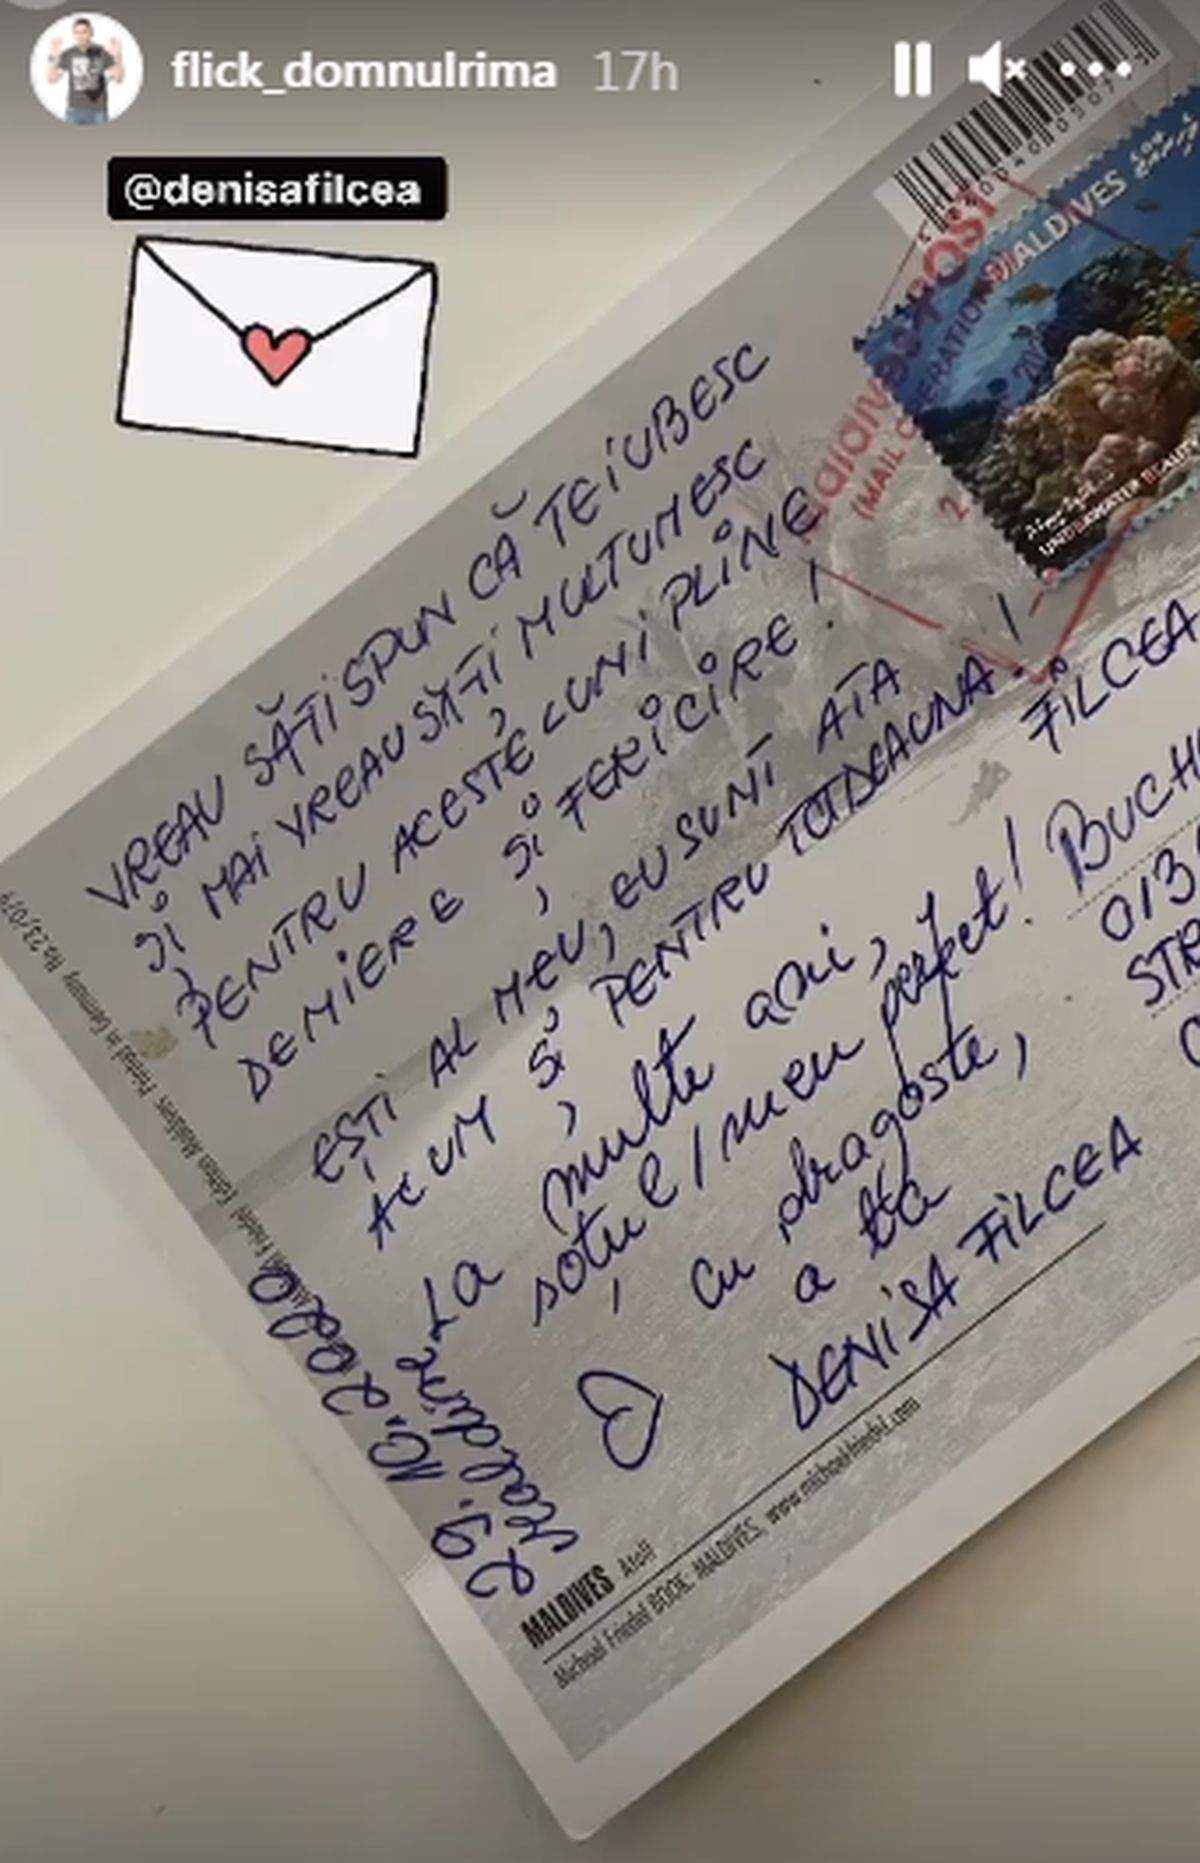 flick_domnulrima 17h
@denisafilcea
MALDIVES
UNDERWATER BEAUTY
VREAU SĂ-ȚI SPUN CĂ TE IUBESC
ȘI MAI VREAU SĂ-ȚI MULTUMESC
PENTRU ACESTE LUNI PLINE
DE MIERE ȘI FERICIRE!
EȘTI AL MEU, EU SUNT A TA
ACUM ȘI PENTRU TOTDEAUNA!
La multe ani,
soțul meu perfect!
Cu dragoste,
a ta
DENISA FILCEA
FILCEA
BUCH
013
STR
29.10.2020
Maldive
MALDIVES Atoll
Michael Friedel BOOK: MALDIVES, www.michaelfriedel.com
Printed in Germany No.23/079